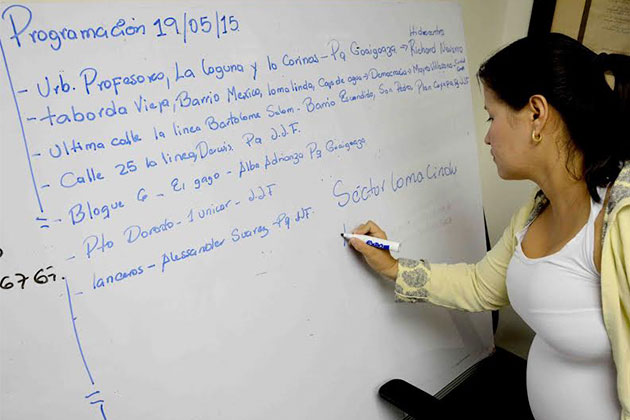 Programación 19/05/15
Hidrocentro
- Urb. Profesores, La Laguna y lo Corinas - Pq Goaigoaza → Richard Navarro
- taborda Vieja, Barrio Mexico, loma linda, Caja de agua, Democracia
- Ultima calle la linea Bartolome Salom - Barrio Escondido, San Pedro, Plan
- Calle 25 la linea, Darwis Pq J.J.F.
- Bloque 6 - El gago - Alba Adrianza Pq Goaigoaza
Séctor Loma Linda
- Pto Dorado - 1 unicar - J.J.F
- lanceros - Alessander Suarez - Pq J.J.F.
6765.